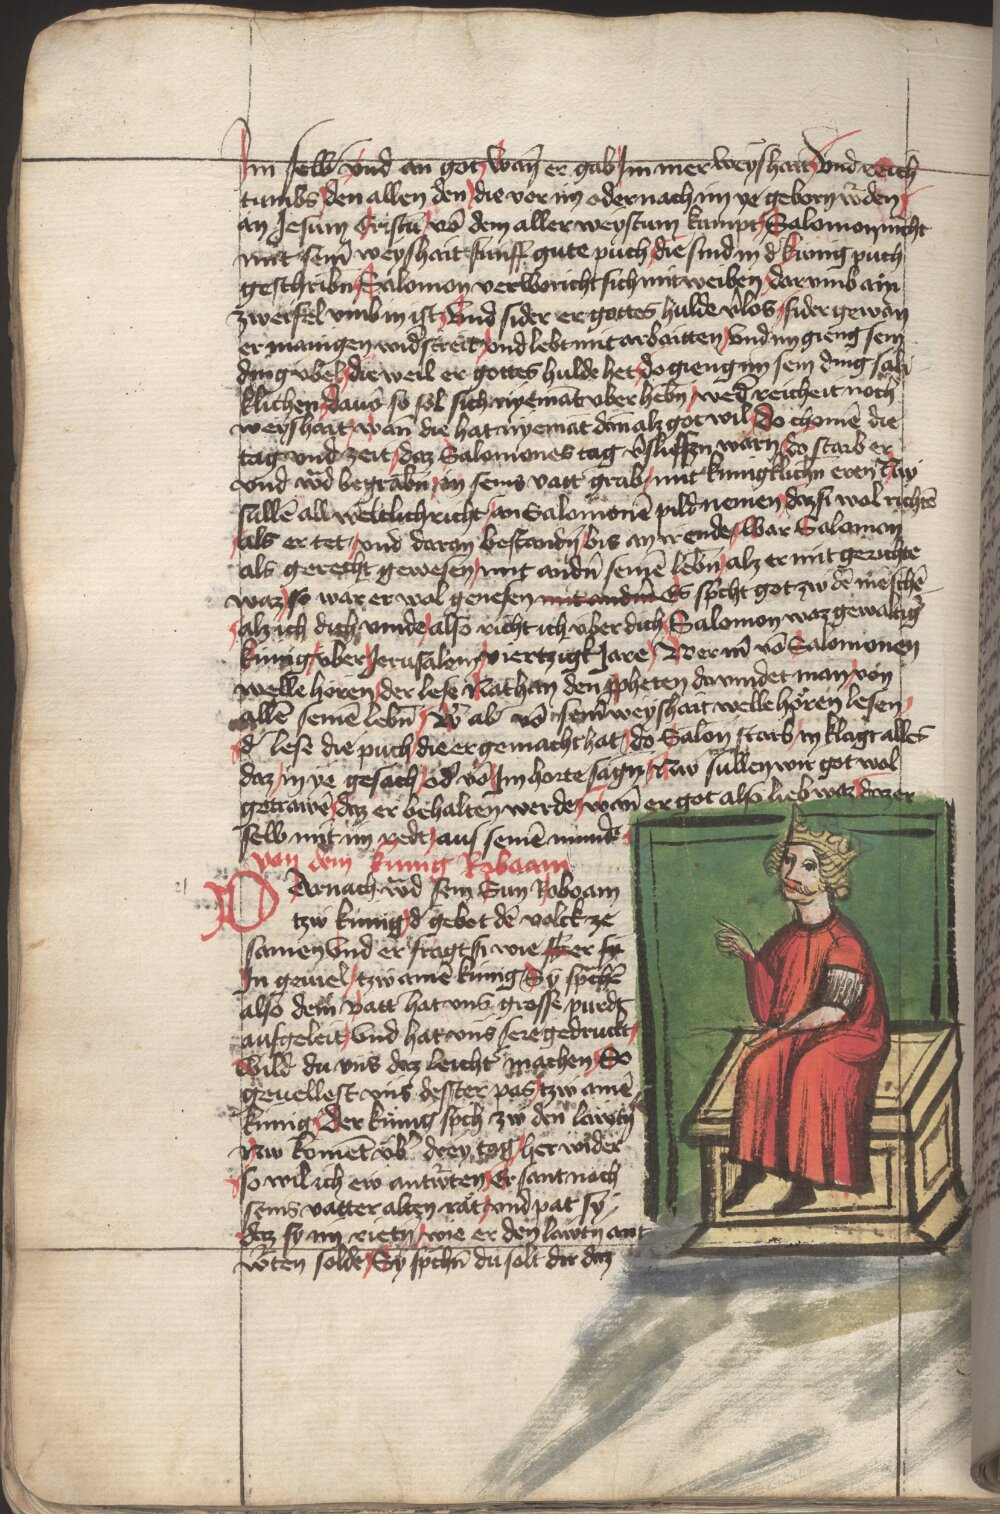 Im selb vnd an got Wan̄ er gab Im mer weyshait vnd reich
tumbs den allen den die vor im oder nach im ye geborn wˀden
an Jesum Cristū võ dem aller weystum kumpt Salomon macht
mit sein̄ weyshait funff gute puch die sind in dˀ kunig puch
geschribn̄ Salomon verworicht sich mit weiben dar vmb ain
zweifel vmb in ist Vnd sider er gottes hulde vˀlos sider gewan
er manigen widˀstreit vnd lebt mit arbaitten Vnd im gieng sein
ding vbel die weil er gottes hulde het do gieng im sein ding säli
klichen dauō so sol sich nyemāt vber hebn̄ wedˀ reicheit noch
weyshait wan̄ die hat nyemat dan̄ alz got wil Do chomē die
tag vnd zeit daz Salomones tag vˀslieffn̄ warn do starb er
vnd wˀd begrabn̄ in seins vatˀ grab mit kunigklichn̄ eren Nw
sullē all weltlich richtˀ an Salomonē pild nemen daz si wol richtē
als er tet vnd daran bestandn̄ bis an ir ende War Salomon
als gerecht gewesen mit andˀn seinē lebn̄ alz er mit gerichte
waz so war er wol genesen mit andˀn Es spˀcht got zw dē mēschē
alz ich dich vinde also richt ich vber dich Salomon waz gewaltigˀ
kunig vber Jerusalem viertzigk Jare Wer nˀ võ Salomonen
welle horen der lese Nathan den ppheten do vindet man von
allē seinē lebn̄ Wˀ abˀ võ seinˀ weyshait welle hören lesen
dˀ lese die puch die er gemacht hat do Salon̄ starb in klagt alles
daz in ye gesach odˀ võ Im horte sagn̄ Nw sullen wir got wol
getrawē daz er behalten werde wan̄ er got also lieb waz daz er
selb mit im redt aus seinē munde
von dem kunig Roboam
Darnach wˀd sein Sun Roboam
tzw kunig dˀ gebot dē volck ze
samen Vnd er fragt si wie er sy
In geuiel tzw ainē kunig Sy spˀchē
also dein vatˀ hat vns grosse purdˀ
aufgeleit Vnd hat vns sere gedruckt
Wild du vns daz leichtˀ machen So
geuellest vns dester pas tzw ainē
kunig Der kunig spˀch zw den lawtn̄
Nw komēt vbˀ drey tag her wider
so wil ich ew antwˀten Er sant nach
seins vatter alten rät vnd pat sy
daz sy im rietn̄ wie er den lawtn̄ ant
wˀten solde Sy spˀchn̄ du solt dir daz